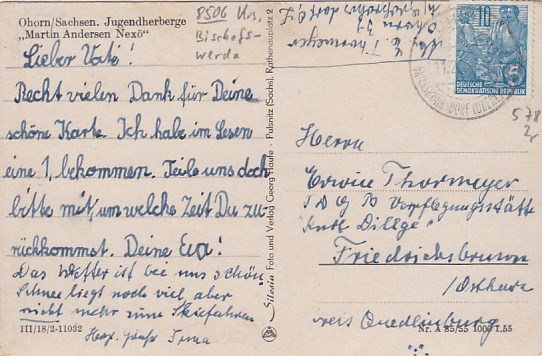 Ohorn/Sachsen. Jugendherberge
„Martin Andersen Nexö“
8506
Bischofs-
werda
Lieber Vati!
Recht vielen Dank für Deine
schöne Karte. Ich habe im Lesen
eine 1, bekommen. Teile uns doch
bitte mit, um welche Zeit Du zu-
rückkommst. Deine Eva!
Das Wetter ist bei uns schön
Schnee liegt noch viel aber
nicht mehr zum Skifahren
Herzl. Grüße Irma
III/18/2-11032
Silesia Foto und Verlag Georg Haufe · Pulsnitz (Sachs), Rathenauplatz 2
10
5
DEUTSCHE
DEMOKRATISCHE REPUBLIK
578
Herrn
Erwin Thormeyer
F D G B Verpflegungsstätte
Friedrichsbrunn
/Ostharz
Kreis Quedlinburg
Nr. A 85/55 1000 I.55